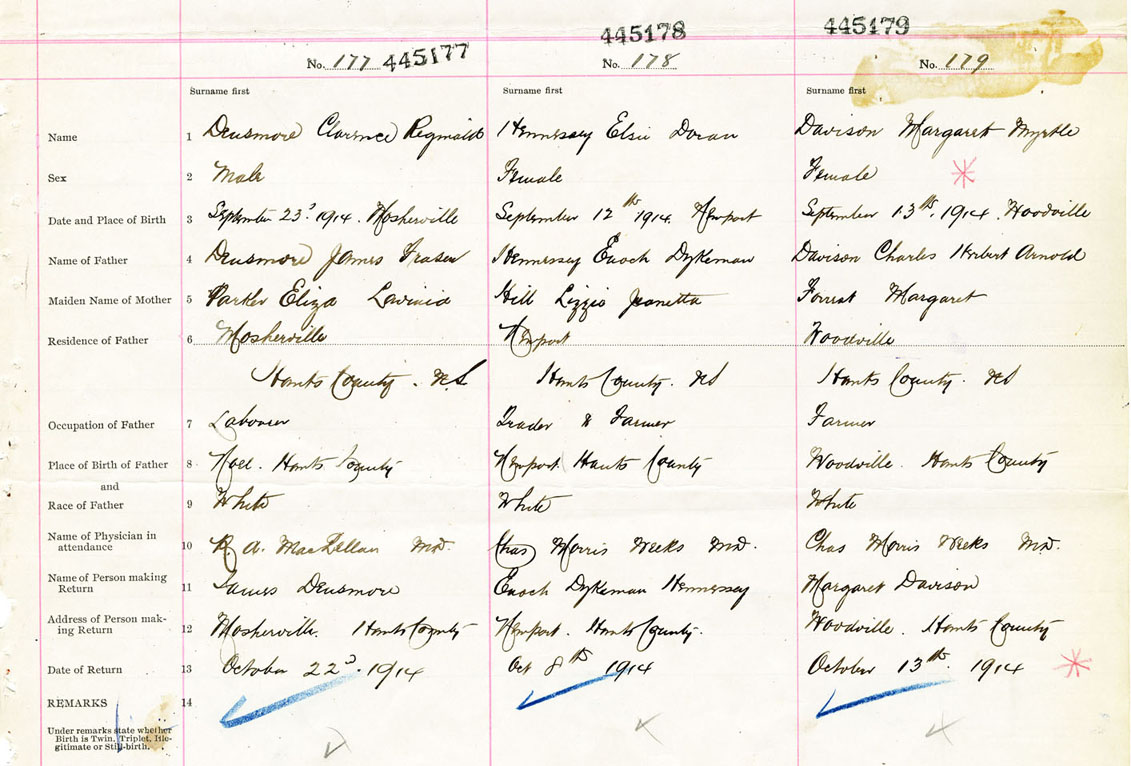 445177 445178 445179
No. 177 No. 178 No. 179
Surname first Surname first Surname first
Name 1 Densmore Clarence Reginald Hennessey Elsie Doran Davison Margaret Myrtle
Sex 2 Male Female Female
Date and Place of Birth 3 September 23d 1914. Mosherville September 12th 1914. Newport September 13th. 1914. Woodville
Name of Father 4 Densmore James Fraser Hennessey Enoch Dykeman Davison Charles Herbert Arnold
Maiden Name of Mother 5 Parker Eliza Lavinia Hill Lizzie Jeanetta Forrest Margaret
Residence of Father 6 Mosherville Newport Woodville
Hants County. NS Hants County. NS Hants County. NS
Occupation of Father 7 Labourer Trader & Farmer Farmer
Place of Birth of Father 8 Noel. Hants County Newport Hants County Woodville. Hants County
and
Race of Father 9 White White White
Name of Physician in
attendance 10 R A. MacLellan MD. Chas Morris Weeks MD. Chas Morris Weeks MD.
Name of Person making
Return 11 James Densmore Enoch Dykeman Hennessey Margaret Davison
Address of Person mak-
ing Return 12 Mosherville. Hants County Newport. Hants County. Woodville. Hants County
Date of Return 13 October 22d. 1914 Oct 8th 1914 October 13th. 1914
REMARKS 14
Under remarks state whether
Birth is Twin, Triplet, Ille-
gitimate or Still-birth.